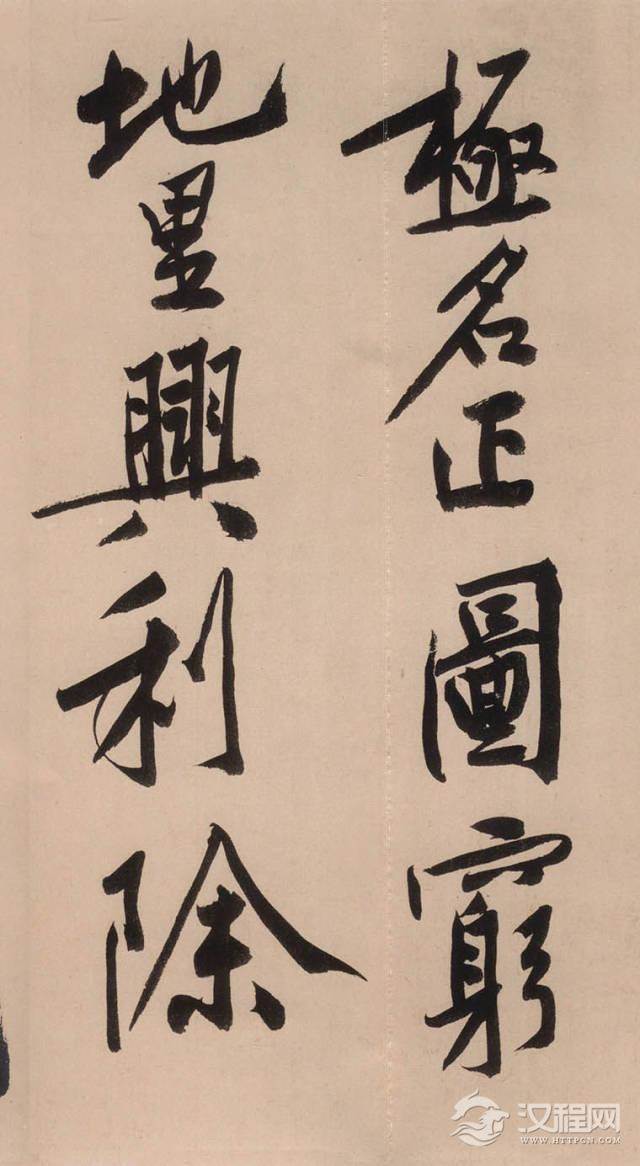 極名正圖窮
地里興利除
汉程网
WWW.HTTPCN.COM